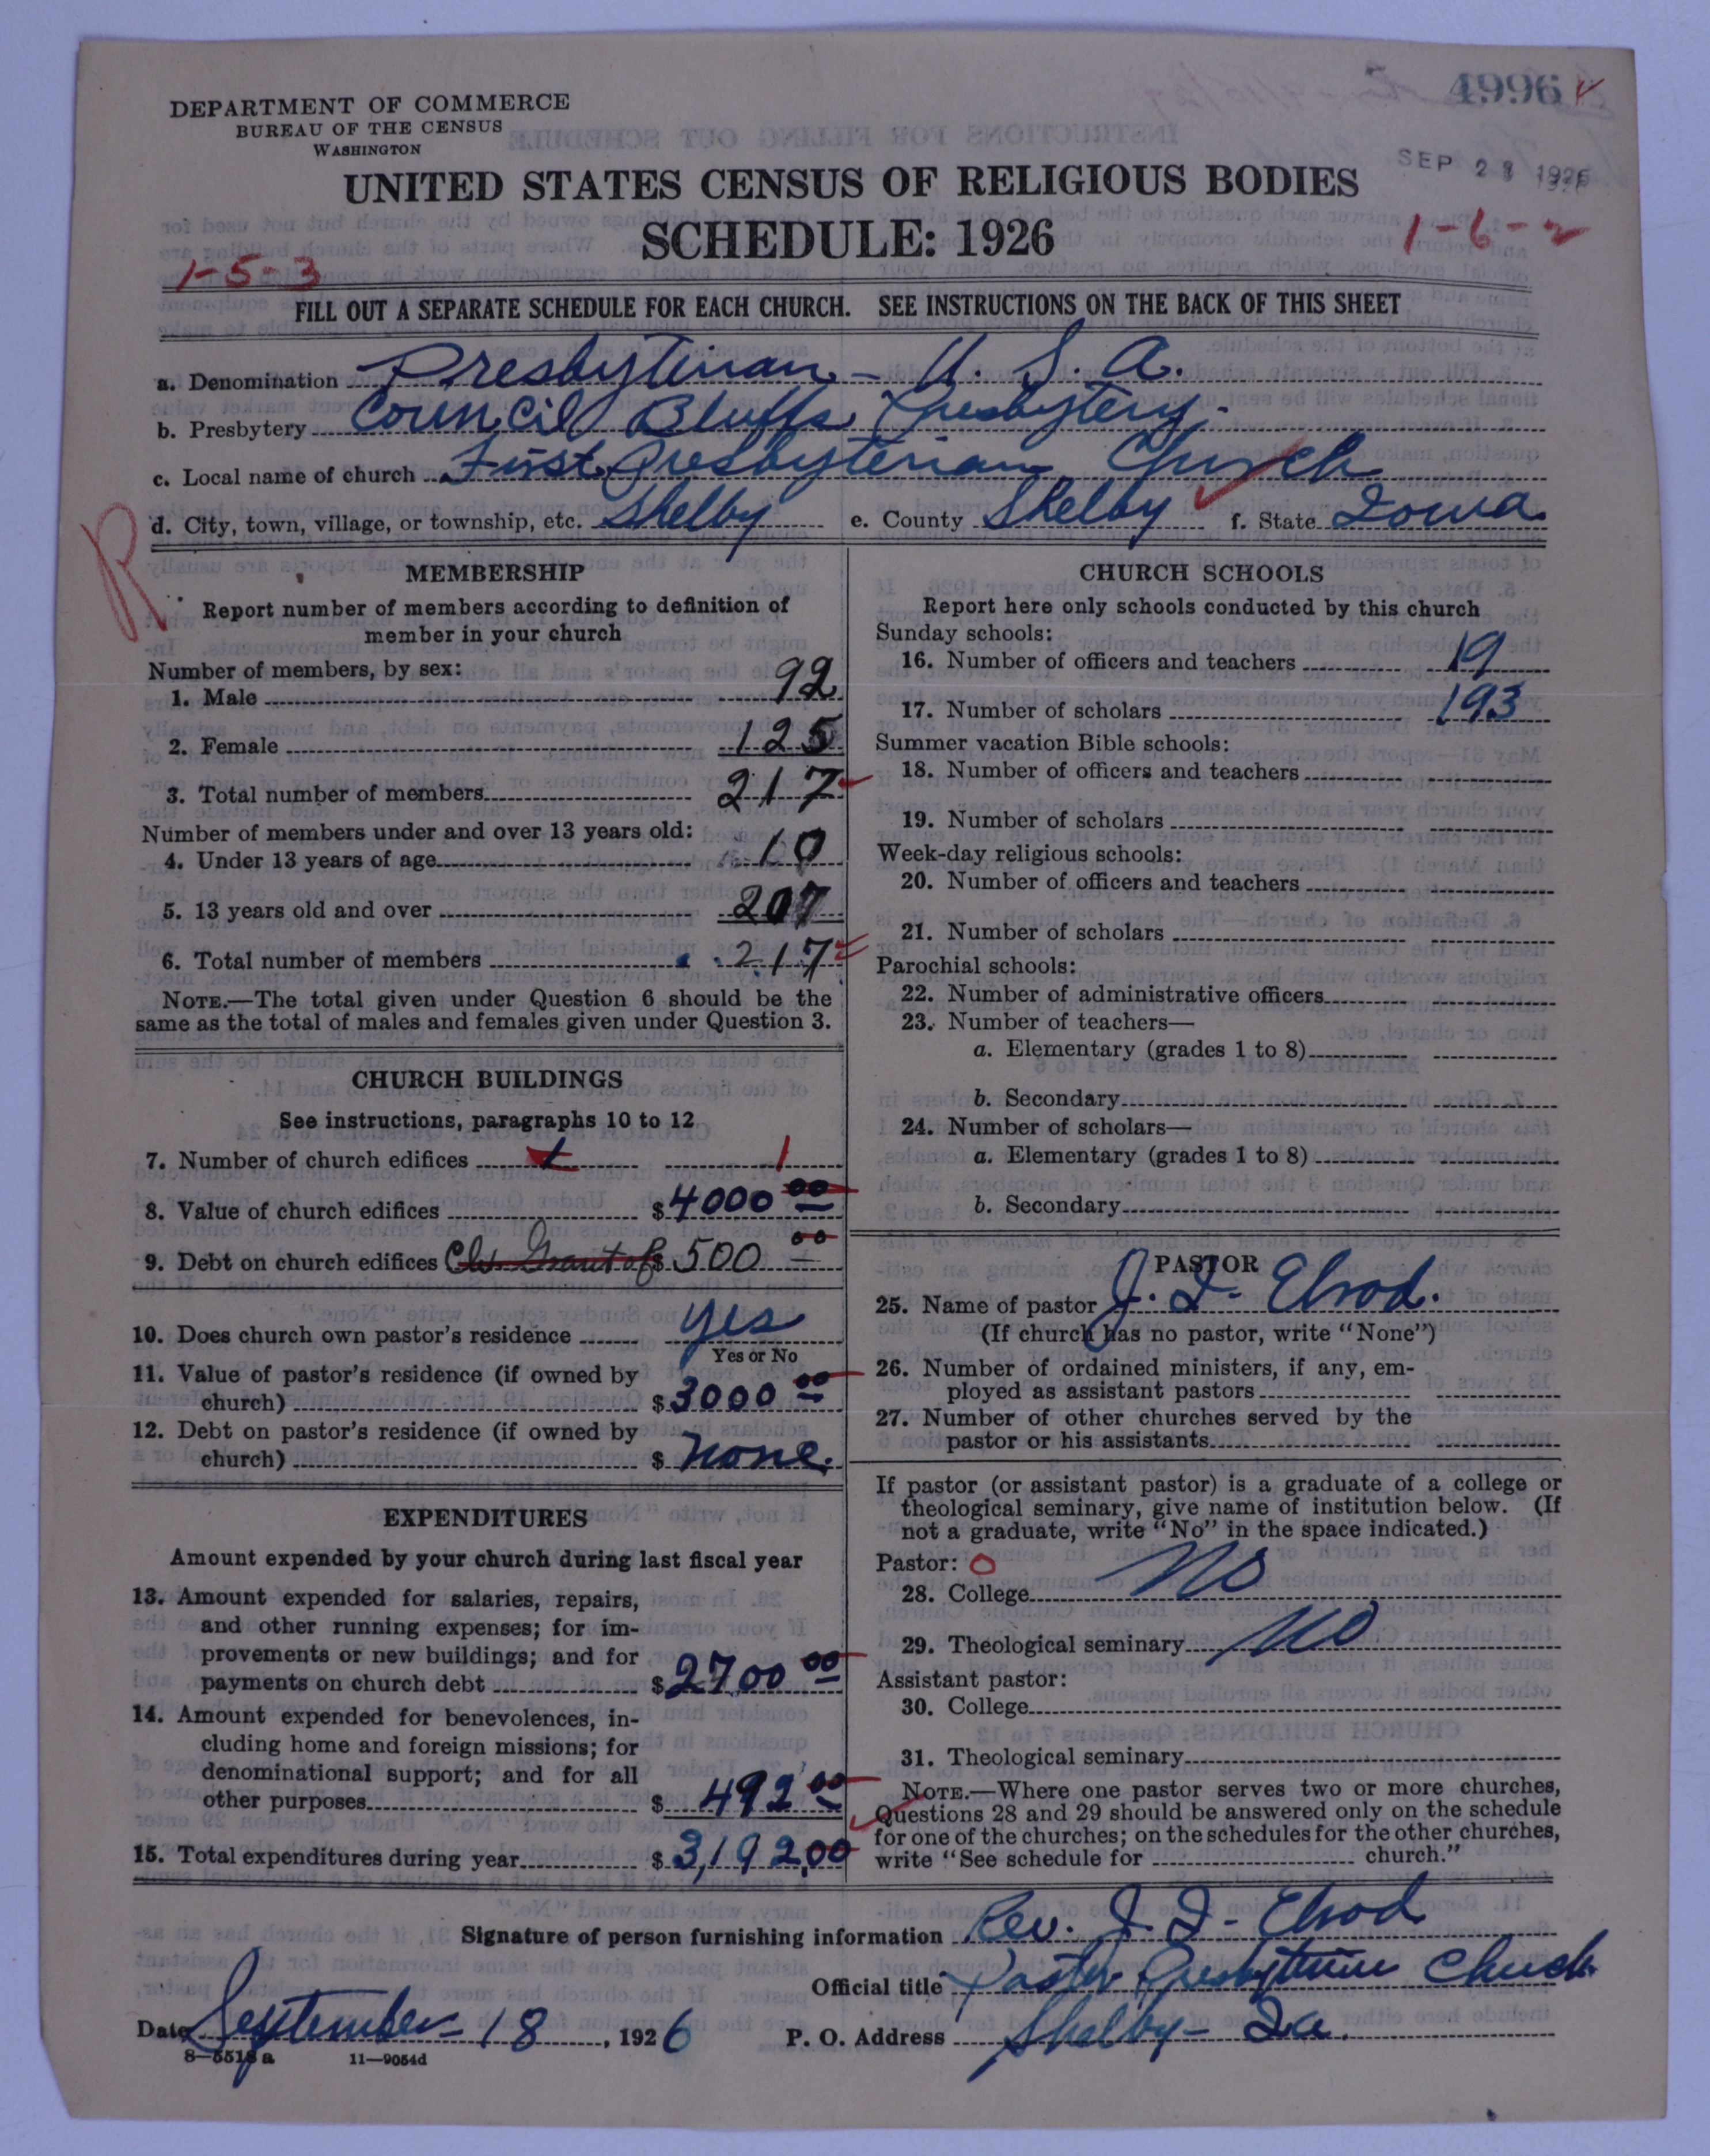 4996
DEPARTMENT OF COMMERCE
BUREAU OF THE CENSUS
WASHINGTON
SEP 2 1926
UNITED STATES CENSUS OF RELIGIOUS BODIES
SCHEDULE: 1926
1-5-3
1-6-2
FILL OUT A SEPARATE SCHEDULE FOR EACH CHURCH. SEE INSTRUCTIONS ON THE BACK OF THIS SHEET
a. Denomination Presbyterian - U. S. A.
b. Presbytery Council Bluffs Presbytery.
c. Local name of church First Presbyterian Church
d. City, town, village, or township, etc. Shelby e. County Shelby f. State Iowa
R
MEMBERSHIP
Report number of members according to definition of
member in your church
Number of members, by sex:
1. Male 92
2. Female 125
3. Total number of members 217
Number of members under and over 13 years old:
4. Under 13 years of age 10
5. 13 years old and over 207
6. Total number of members 217
NOTE.—The total given under Question 6 should be the
same as the total of males and females given under Question 3.
CHURCH BUILDINGS
See instructions, paragraphs 10 to 12
7. Number of church edifices 1
8. Value of church edifices $4000 00
9. Debt on church edifices Ch. Grant of $500 00
10. Does church own pastor's residence Yes
Yes or No
11. Value of pastor's residence (if owned by
church) $3000 00
12. Debt on pastor's residence (if owned by
church) $ none.
EXPENDITURES
Amount expended by your church during last fiscal year
13. Amount expended for salaries, repairs,
and other running expenses; for im-
provements or new buildings; and for
payments on church debt $2700 00
14. Amount expended for benevolences, in-
cluding home and foreign missions; for
denominational support; and for all
other purposes $492 00
15. Total expenditures during year $3,192.00
CHURCH SCHOOLS
Report here only schools conducted by this church
Sunday schools:
16. Number of officers and teachers 19
17. Number of scholars 193
Summer vacation Bible schools:
18. Number of officers and teachers
19. Number of scholars
Week-day religious schools:
20. Number of officers and teachers
21. Number of scholars
Parochial schools:
22. Number of administrative officers
23. Number of teachers—
a. Elementary (grades 1 to 8)
b. Secondary
24. Number of scholars—
a. Elementary (grades 1 to 8)
b. Secondary
PASTOR
25. Name of pastor J. I. Elrod.
(If church has no pastor, write "None")
26. Number of ordained ministers, if any, em-
ployed as assistant pastors
27. Number of other churches served by the
pastor or his assistants
If pastor (or assistant pastor) is a graduate of a college or
theological seminary, give name of institution below. (If
not a graduate, write "No" in the space indicated.)
Pastor: 0
28. College No
29. Theological seminary No
Assistant pastor:
30. College
31. Theological seminary
NOTE.—Where one pastor serves two or more churches,
Questions 28 and 29 should be answered only on the schedule
for one of the churches; on the schedules for the other churches,
write "See schedule for church."
Signature of person furnishing information Rev. J. I. Elrod
Official title Pastor Presbyterian Church
Date September 18, 1926 P. O. Address Shelby - Ia.
8-5518 a 11-9054d